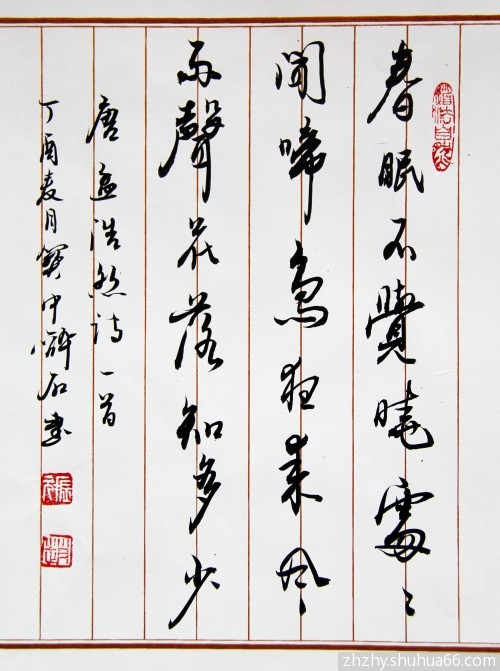 道法自然
春眠不覺曉處々
聞啼鳥夜來風
雨聲花落知多少
唐孟浩然詩一首
丁酉夏月冀中癖石書
zhzhy.shuhua66.com